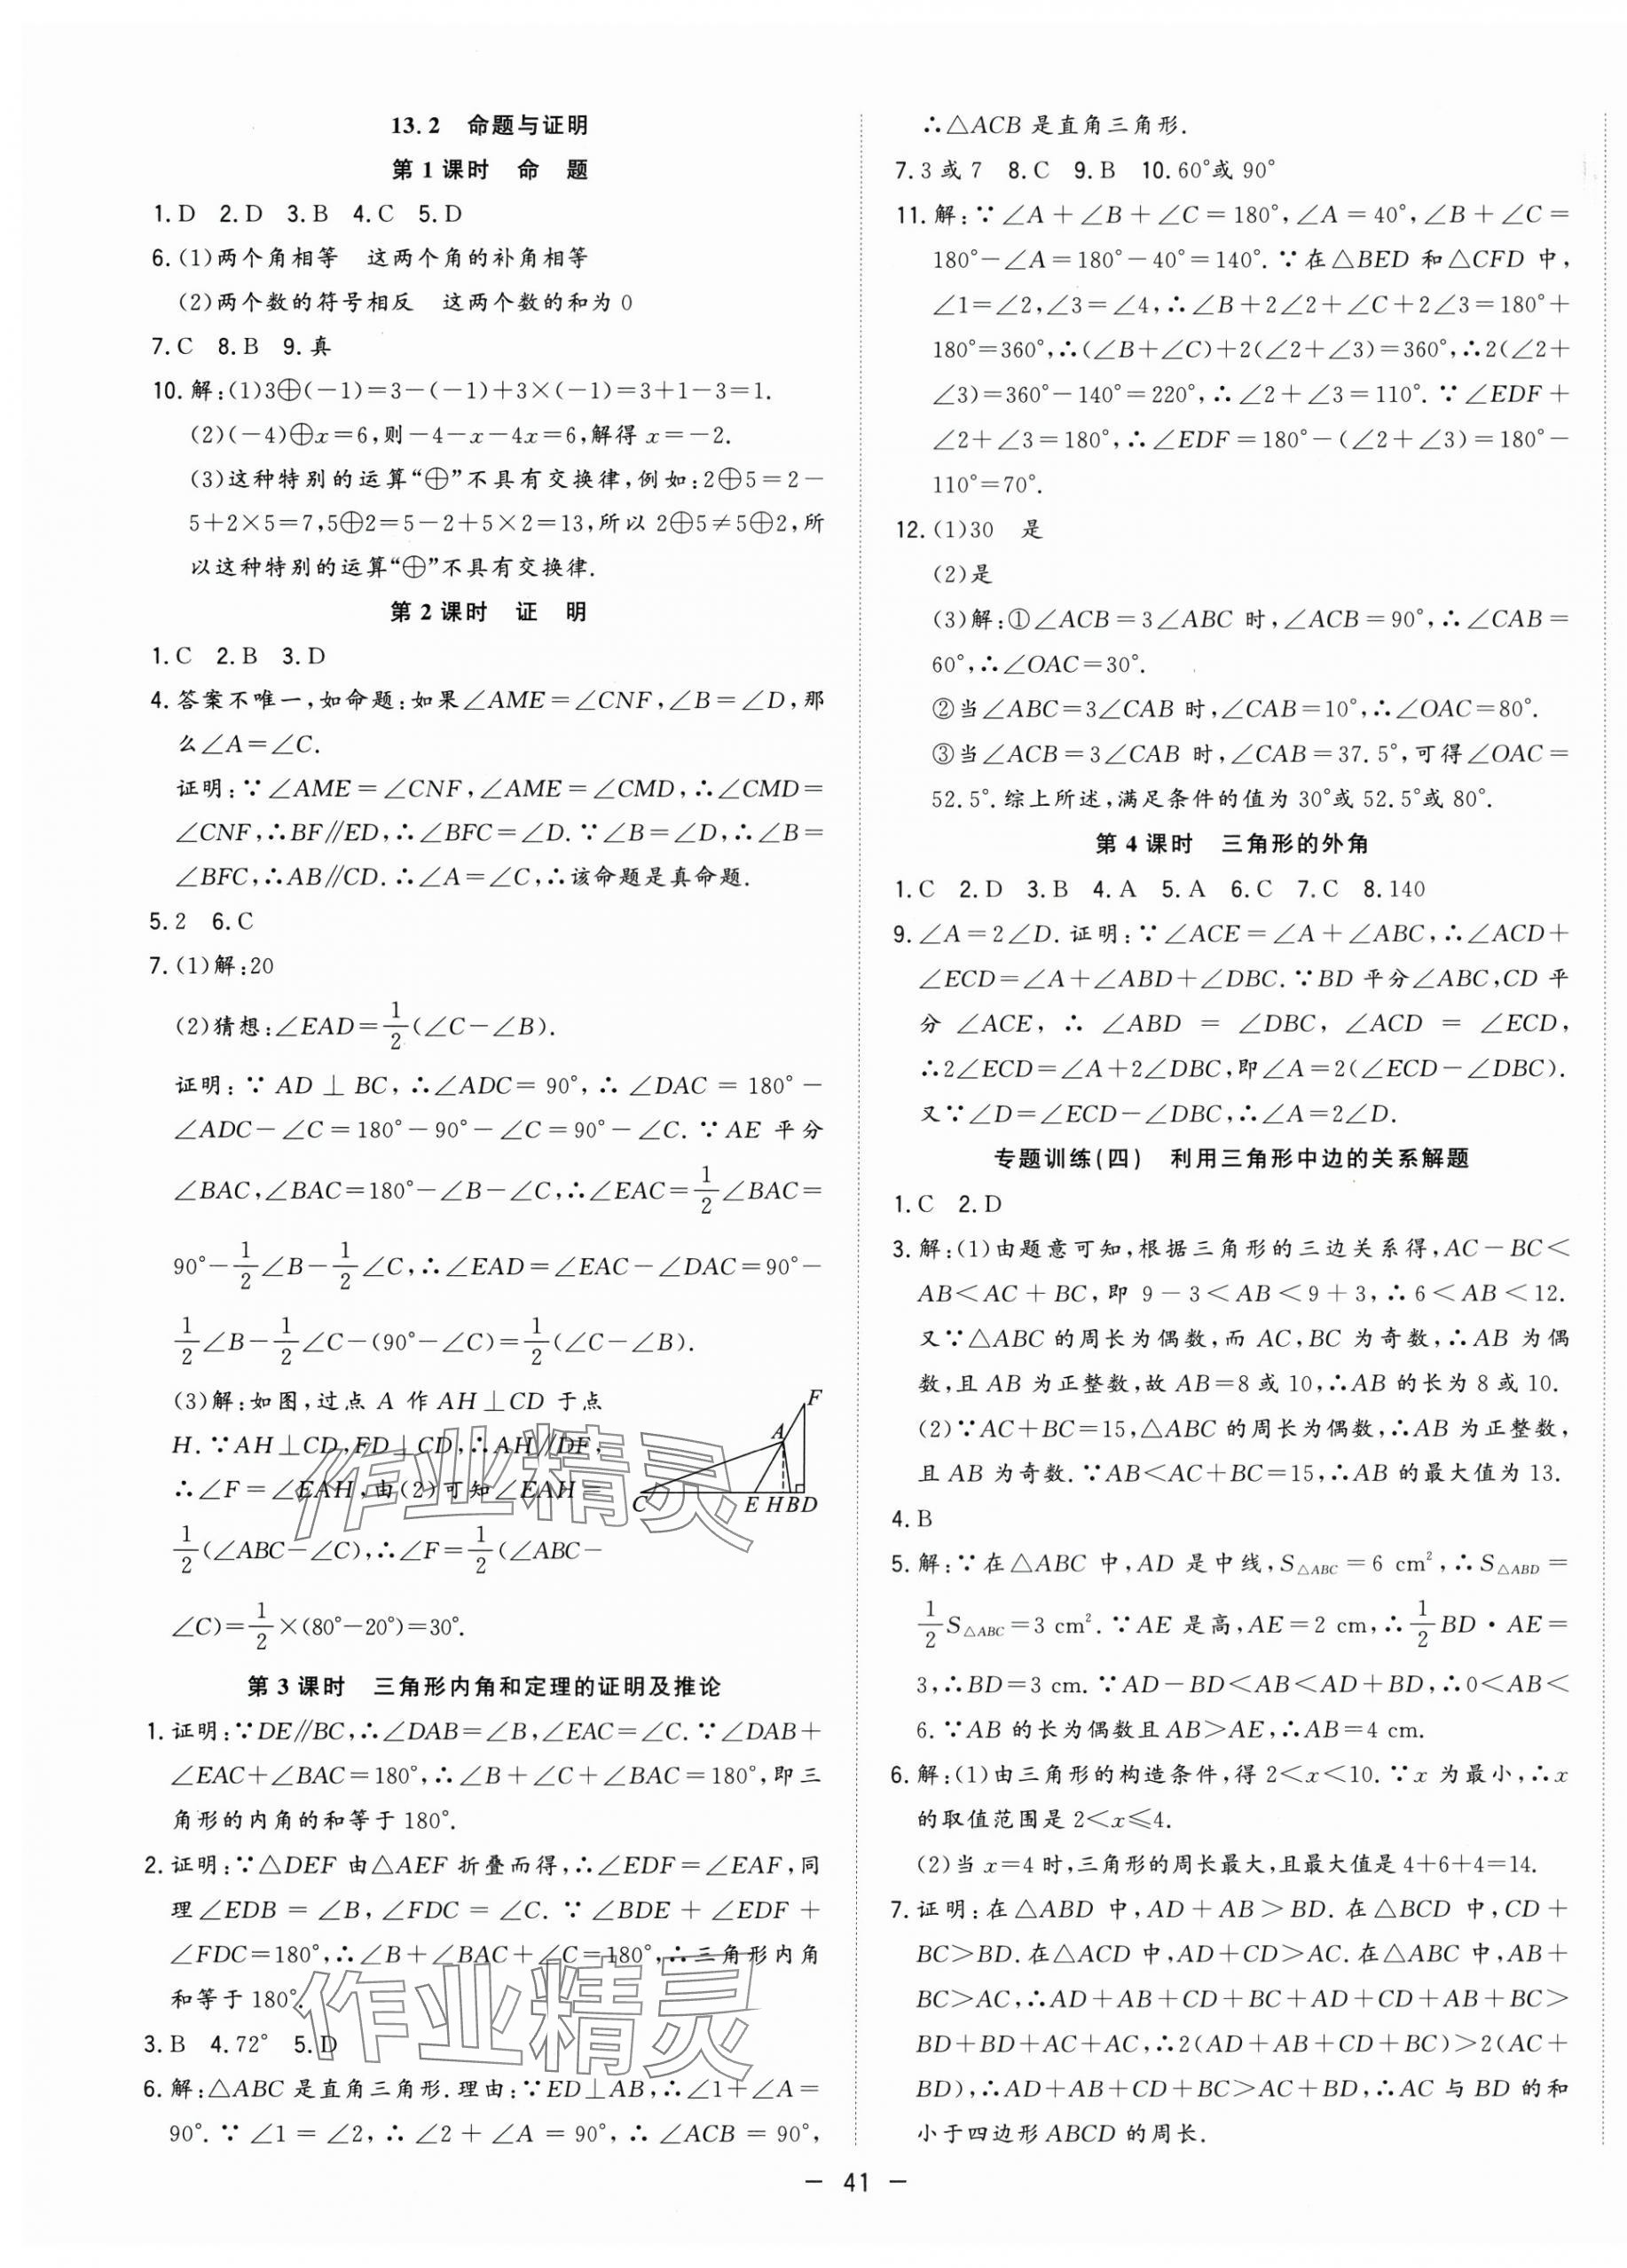 13.2 命题与证明
第1课时 命 题
1.D 2.D 3.B 4.C 5.D
6.(1)两个角相等 这两个角的补角相等
(2)两个数的符号相反 这两个数的和为0
7.C 8.B 9.真
10.解:(1)3⊕(-1)=3-(-1)+3×(-1)=3+1-3=1.
(2)(-4)⊕x=6,则-4-x-4x=6,解得x=-2.
(3)这种特别的运算“⊕”不具有交换律,例如:2⊕5=2-
5+2×5=7,5⊕2=5-2+5×2=13,所以2⊕5≠5⊕2,所
以这种特别的运算“⊕”不具有交换律.
第2课时 证 明
1.C 2.B 3.D
4.答案不唯一,如命题:如果∠AME=∠CNF,∠B=∠D,那
么∠A=∠C.
证明:∵∠AME=∠CNF,∠AME=∠CMD,∴∠CMD=
∠CNF,∴BF∥ED,∴∠BFC=∠D.∵∠B=∠D,∴∠B=
∠BFC,∴AB∥CD.∴∠A=∠C,∴该命题是真命题.
5.2 6.C
7.(1)解:20
(2)猜想:∠EAD=1/2(∠C-∠B).
证明:∵AD⊥BC,∴∠ADC=90°,∴∠DAC=180°-
∠ADC-∠C=180°-90°-∠C=90°-∠C.∵AE平分
∠BAC,∠BAC=180°-∠B-∠C,∴∠EAC=1/2∠BAC=
90°-1/2∠B-1/2∠C,∴∠EAD=∠EAC-∠DAC=90°-
1/2∠B-1/2∠C-(90°-∠C)=1/2(∠C-∠B).
(3)解:如图,过点A作AH⊥CD于点
H.∵AH⊥CD,FD⊥CD,∴AH∥DF,
∴∠F=∠EAH,由(2)可知∠EAH=
1/2(∠ABC-∠C),∴∠F=1/2(∠ABC-
∠C)=1/2×(80°-20°)=30°.
F
A
C E H B D
第3课时 三角形内角和定理的证明及推论
1.证明:∵DE∥BC,∴∠DAB=∠B,∠EAC=∠C.∵∠DAB+
∠EAC+∠BAC=180°,∴∠B+∠C+∠BAC=180°,即三
角形的内角的和等于180°.
2.证明:∵△DEF由△AEF折叠而得,∴∠EDF=∠EAF,同
理∠EDB=∠B,∠FDC=∠C.∵∠BDE+∠EDF+
∠FDC=180°,∴∠B+∠BAC+∠C=180°,∴三角形内角
和等于180°.
3.B 4.72° 5.D
6.解:△ABC是直角三角形.理由:∵ED⊥AB,∴∠1+∠A=
90°.∵∠1=∠2,∴∠2+∠A=90°,∴∠ACB=90°,
∴△ACB是直角三角形.
7.3或7 8.C 9.B 10.60°或90°
11.解:∵∠A+∠B+∠C=180°,∠A=40°,∠B+∠C=
180°-∠A=180°-40°=140°.∵在△BED和△CFD中,
∠1=∠2,∠3=∠4,∴∠B+2∠2+∠C+2∠3=180°+
180°=360°,∴(∠B+∠C)+2(∠2+∠3)=360°,∴2(∠2+
∠3)=360°-140°=220°,∴∠2+∠3=110°.∵∠EDF+
∠2+∠3=180°,∴∠EDF=180°-(∠2+∠3)=180°-
110°=70°.
12.(1)30 是
(2)是
(3)解:①∠ACB=3∠ABC时,∠ACB=90°,∴∠CAB=
60°,∴∠OAC=30°.
②当∠ABC=3∠CAB时,∠CAB=10°,∴∠OAC=80°.
③当∠ACB=3∠CAB时,∠CAB=37.5°,可得∠OAC=
52.5°.综上所述,满足条件的值为30°或52.5°或80°.
第4课时 三角形的外角
1.C 2.D 3.B 4.A 5.A 6.C 7.C 8.140
9.∠A=2∠D.证明:∵∠ACE=∠A+∠ABC,∴∠ACD+
∠ECD=∠A+∠ABD+∠DBC.∵BD平分∠ABC,CD平
分∠ACE,∴∠ABD=∠DBC,∠ACD=∠ECD,
∴2∠ECD=∠A+2∠DBC,即∠A=2(∠ECD-∠DBC).
又∵∠D=∠ECD-∠DBC,∴∠A=2∠D.
专题训练(四) 利用三角形中边的关系解题
1.C 2.D
3.解:(1)由题意可知,根据三角形的三边关系得,AC-BC<
AB<AC+BC,即9-3<AB<9+3,∴6<AB<12.
又∵△ABC的周长为偶数,而AC,BC为奇数,∴AB为偶
数,且AB为正整数,故AB=8或10,∴AB的长为8或10.
(2)∵AC+BC=15,△ABC的周长为偶数,∴AB为正整数,
且AB为奇数.∵AB<AC+BC=15,∴AB的最大值为13.
4.B
5.解:∵在△ABC中,AD是中线,S△ABC=6 cm²,∴S△ABD=
1/2S△ABC=3 cm².∵AE是高,AE=2 cm,∴1/2BD·AE=
3,∴BD=3 cm.∵AD-BD<AB<AD+BD,∴0<AB<
6.∵AB的长为偶数且AB>AE,∴AB=4 cm.
6.解:(1)由三角形的构造条件,得2<x<10.∵x为最小,∴x
的取值范围是2<x≤4.
(2)当x=4时,三角形的周长最大,且最大值是4+6+4=14.
7.证明:在△ABD中,AD+AB>BD.在△BCD中,CD+
BC>BD.在△ACD中,AD+CD>AC.在△ABC中,AB+
BC>AC,∴AD+AB+CD+BC+AD+CD+AB+BC>
BD+BD+AC+AC,∴2(AD+AB+CD+BC)>2(AC+
BD),∴AD+AB+CD+BC>AC+BD,∴AC与BD的和
小于四边形ABCD的周长.
- 41 -
作业精灵
作业精灵